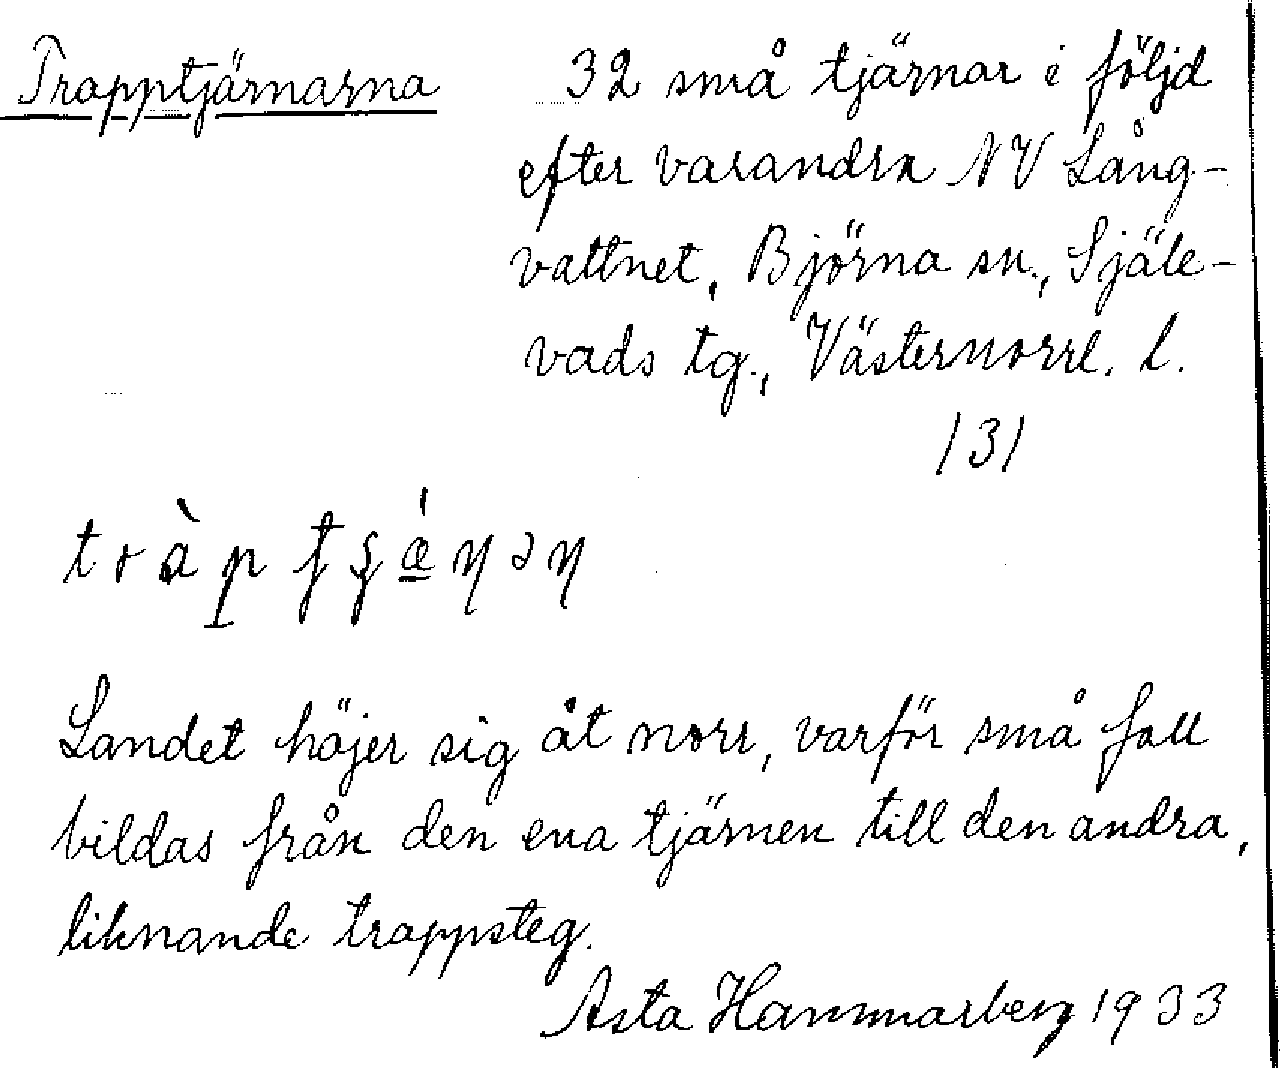 Trapptjärnarna 32 små tjärnar i följd
efter varandra NV Lång-
vattnet, Björna sn., Själe-
vads tg., Västernorrl. l.
/3/
Landet höjer sig åt norr, varför små fall
bildas från den ena tjärnen till den andra,
liknande trappsteg.
Asta Hammarberg 1933